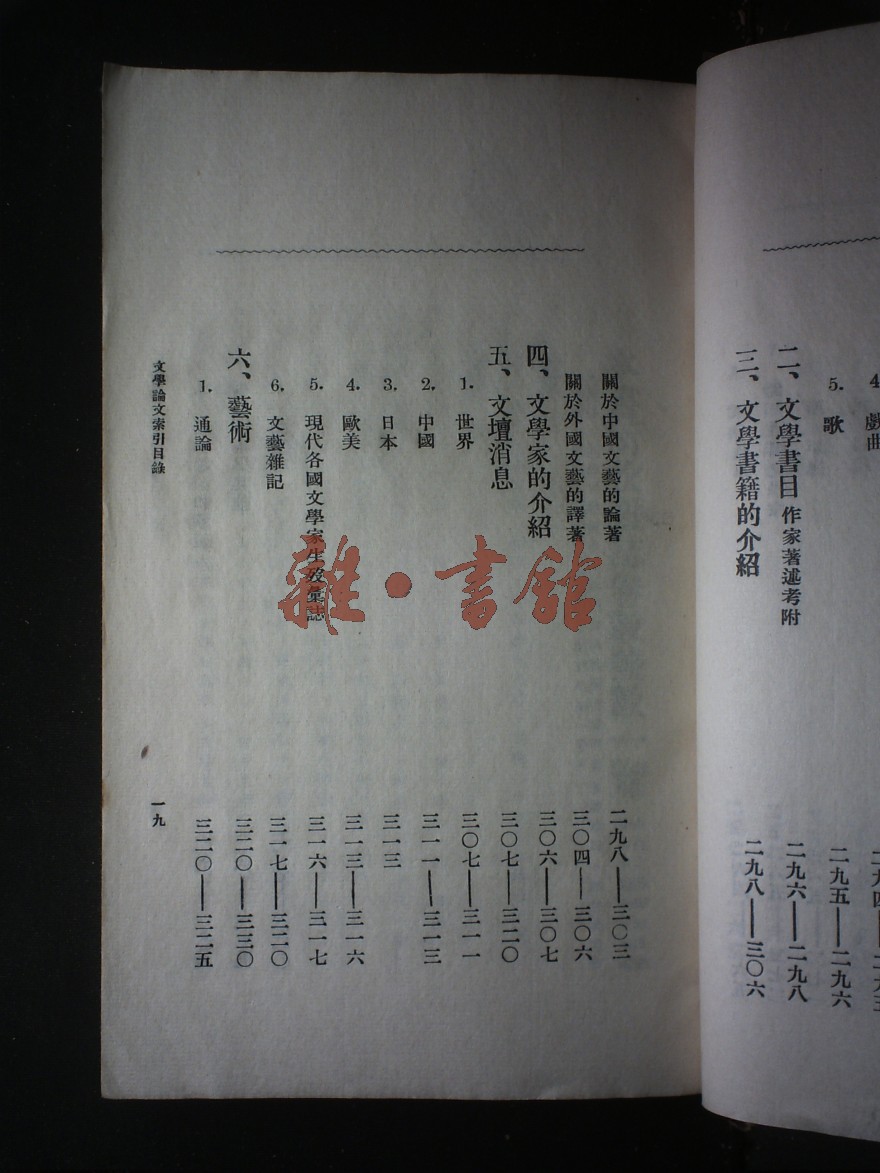 戲曲
5. 歌 二九五——二九六
二、文學書目 作家著述考附 二九六——二九八
三、文學書籍的介紹 二九八——三〇六
關於中國文藝的論著 二九八——三〇三
關於外國文藝的譯著 三〇四——三〇六
四、文學家的介紹 三〇六——三〇七
五、文壇消息 三〇七——三二〇
1. 世界 三〇七——三一一
2. 中國 三一一——三一三
3. 日本 三一三
4. 歐美 三一三——三一六
5. 現代各國文學家生歿彙誌 三一六——三一七
6. 文藝雜記 三一七——三二〇
六、藝術 三二〇——三三〇
1. 通論 三二〇——三二五
文學論文索引目錄
一九
雜·書館